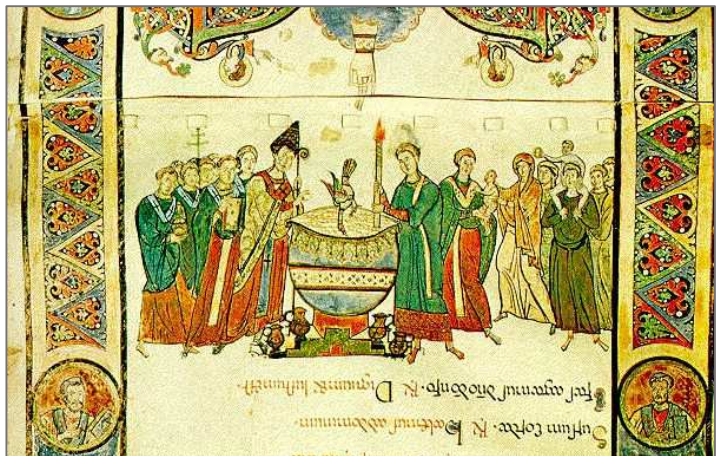 Sursum corda. R Habemus addominum.
agamus dno do nro. R Dignum & iustum est.